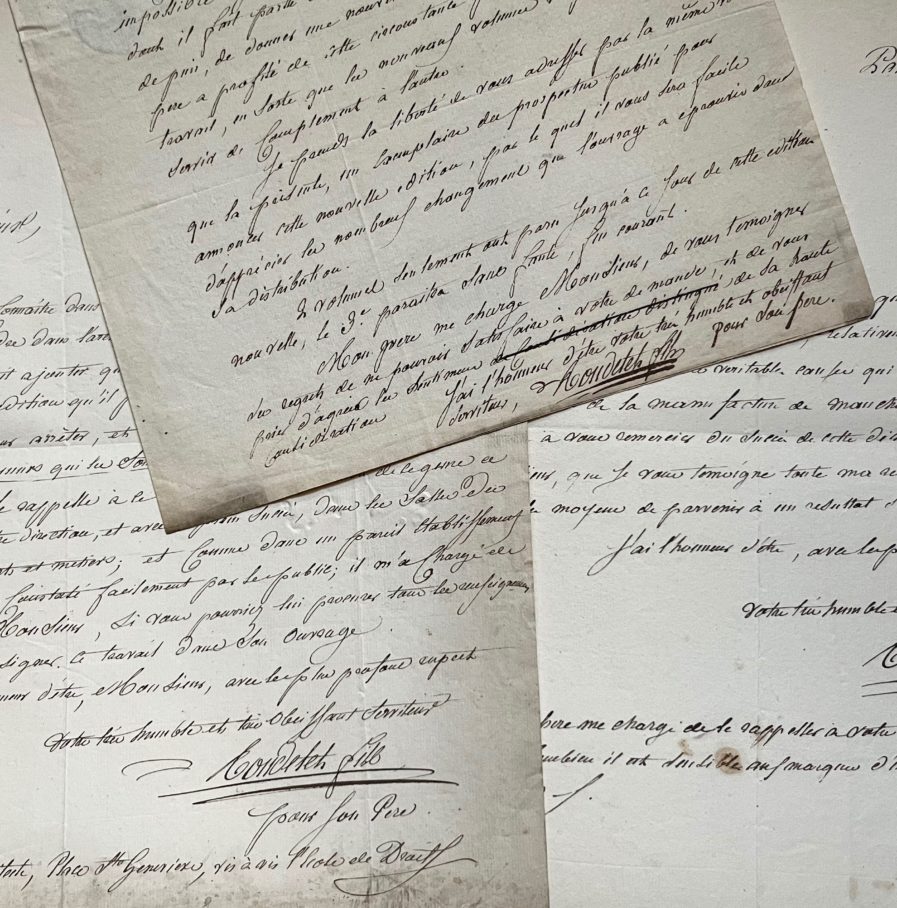 impossible
dont il fait partie
depuis, de donner une nouvel
père a profité de cette circonstance
travail, en sorte que les nouveaux volumes
servir de complement à l'autre.
Je prends la liberté de vous adresser par la même
que la présente, un exemplaire du prospectus publié pour
annoncer cette nouvelle edition, par le quel il vous sera facile
d'apprécier les nombreux changement que l'ouvrage a eprouvés dans
sa distribution.
2 volumes seulement ont paru jusqu'à ce jour de cette edition
nouvelle, le 3e paraitra sans faute, fin courant.
Mon père me charge Monsieur, de vous temoigner
les regrets de ne pouvoir satisfaire à votre demande, et de vous
prier d'agreer les sentimens de la haute
consideration
J'ai l'honneur d'être votre très humble et obeissant
serviteur, fils pour son père.
connaître dans
dans l'art
ajouter qu
edition qu'il
arrêter, et
qui les
rappelle à ce
de ce genre a
direction, et avec succès, dans les salles du
et metiers; et comme dans un pareil établissement
constaté facilement par le public; il m'a chargé de
Monsieur, si vous pouviez lui procurer tous les renseignemens
signer ce travail dans son ouvrage.
d'être, Monsieur, avec le plus profond respect
Votre très humble et très obéissant serviteur
fils
pour son Pere
Place Ste Genevieve, vis à vis l'école de Droit
relativem
veritable cause qui
de la manufacture de
à vous remercier du succès de cette
que je vous temoigne toute ma re
moyens de parvenir à un resultat
J'ai l'honneur d'être, avec le p
Votre très humble
père me charge de le rappeller à votre
combien il est sensible aux marques d'